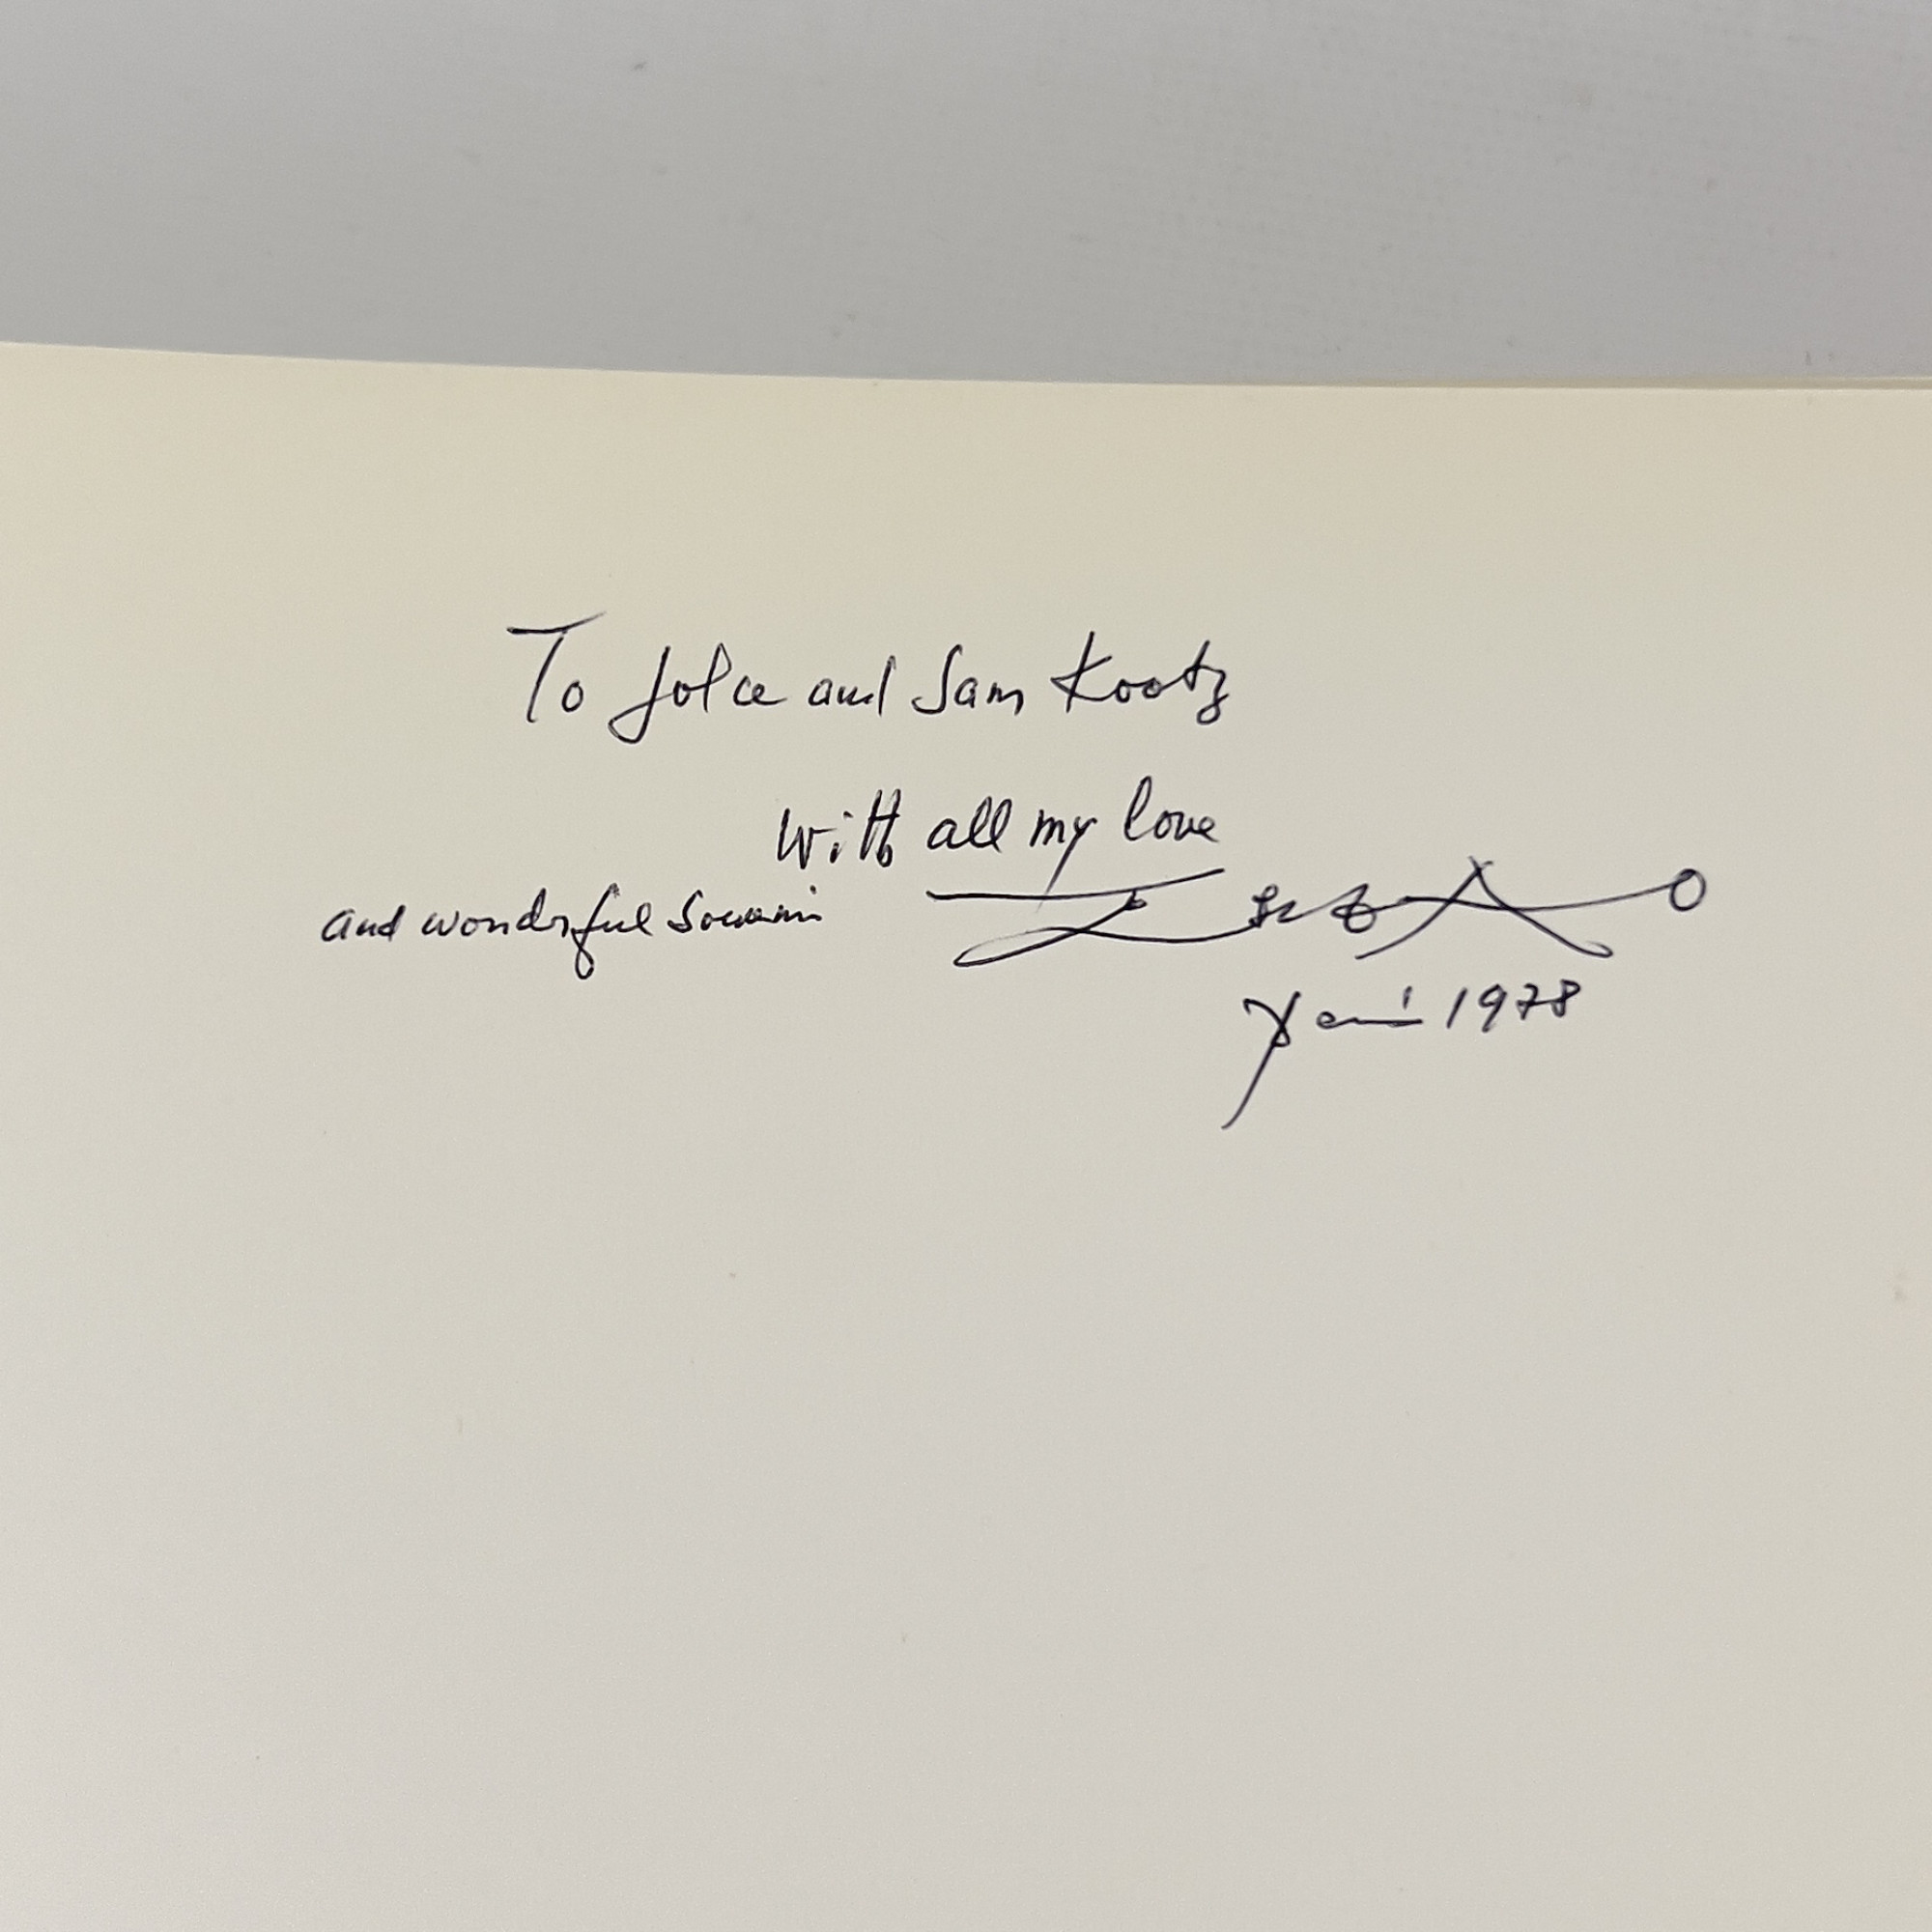 To Jolce and Sam Kootz
With all my love
and wonderful souvenir
Paris 1978